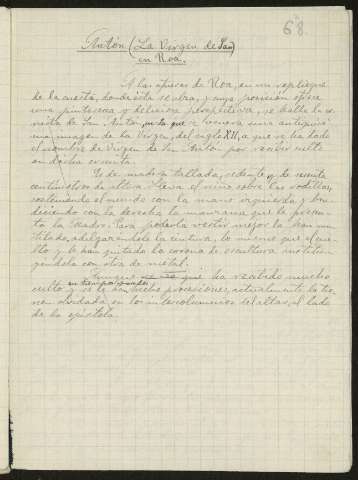 68
Antón (La Virgen de San)
en Roa.
A las afueras de Roa, en un repliegue
de la cuesta, donde ésta se alza, y cuya posición ofrece
una pintoresca y deliciosa perspectiva, se halla la er-
mita de San Antón, en la que se venera una antiquísi-
ma imagen de la Virgen, del siglo XII, a que se ha dado
el nombre de Virgen de San Antón por recibir culto
en dicha ermita.
Es de madera tallada, sedente, y de sesenta
centímetros de altura. Lleva el niño sobre las rodillas,
sosteniendo el mundo con la mano izquierda y ben-
diciendo con la derecha la manzana que le presen-
ta la Madre. Para poderla vestir mejor la han mu-
tilado, adelgazándole la cintura, lo mismo que el man-
to y le han quitado la corona de escultura sustitu-
yéndola con otra de metal.
Aunque ha recibido mucho
en tiempo
culto y se le han hecho procesiones, actualmente la tie-
nen olvidada en los intercolumnios del altar, al lado
de la epístola.